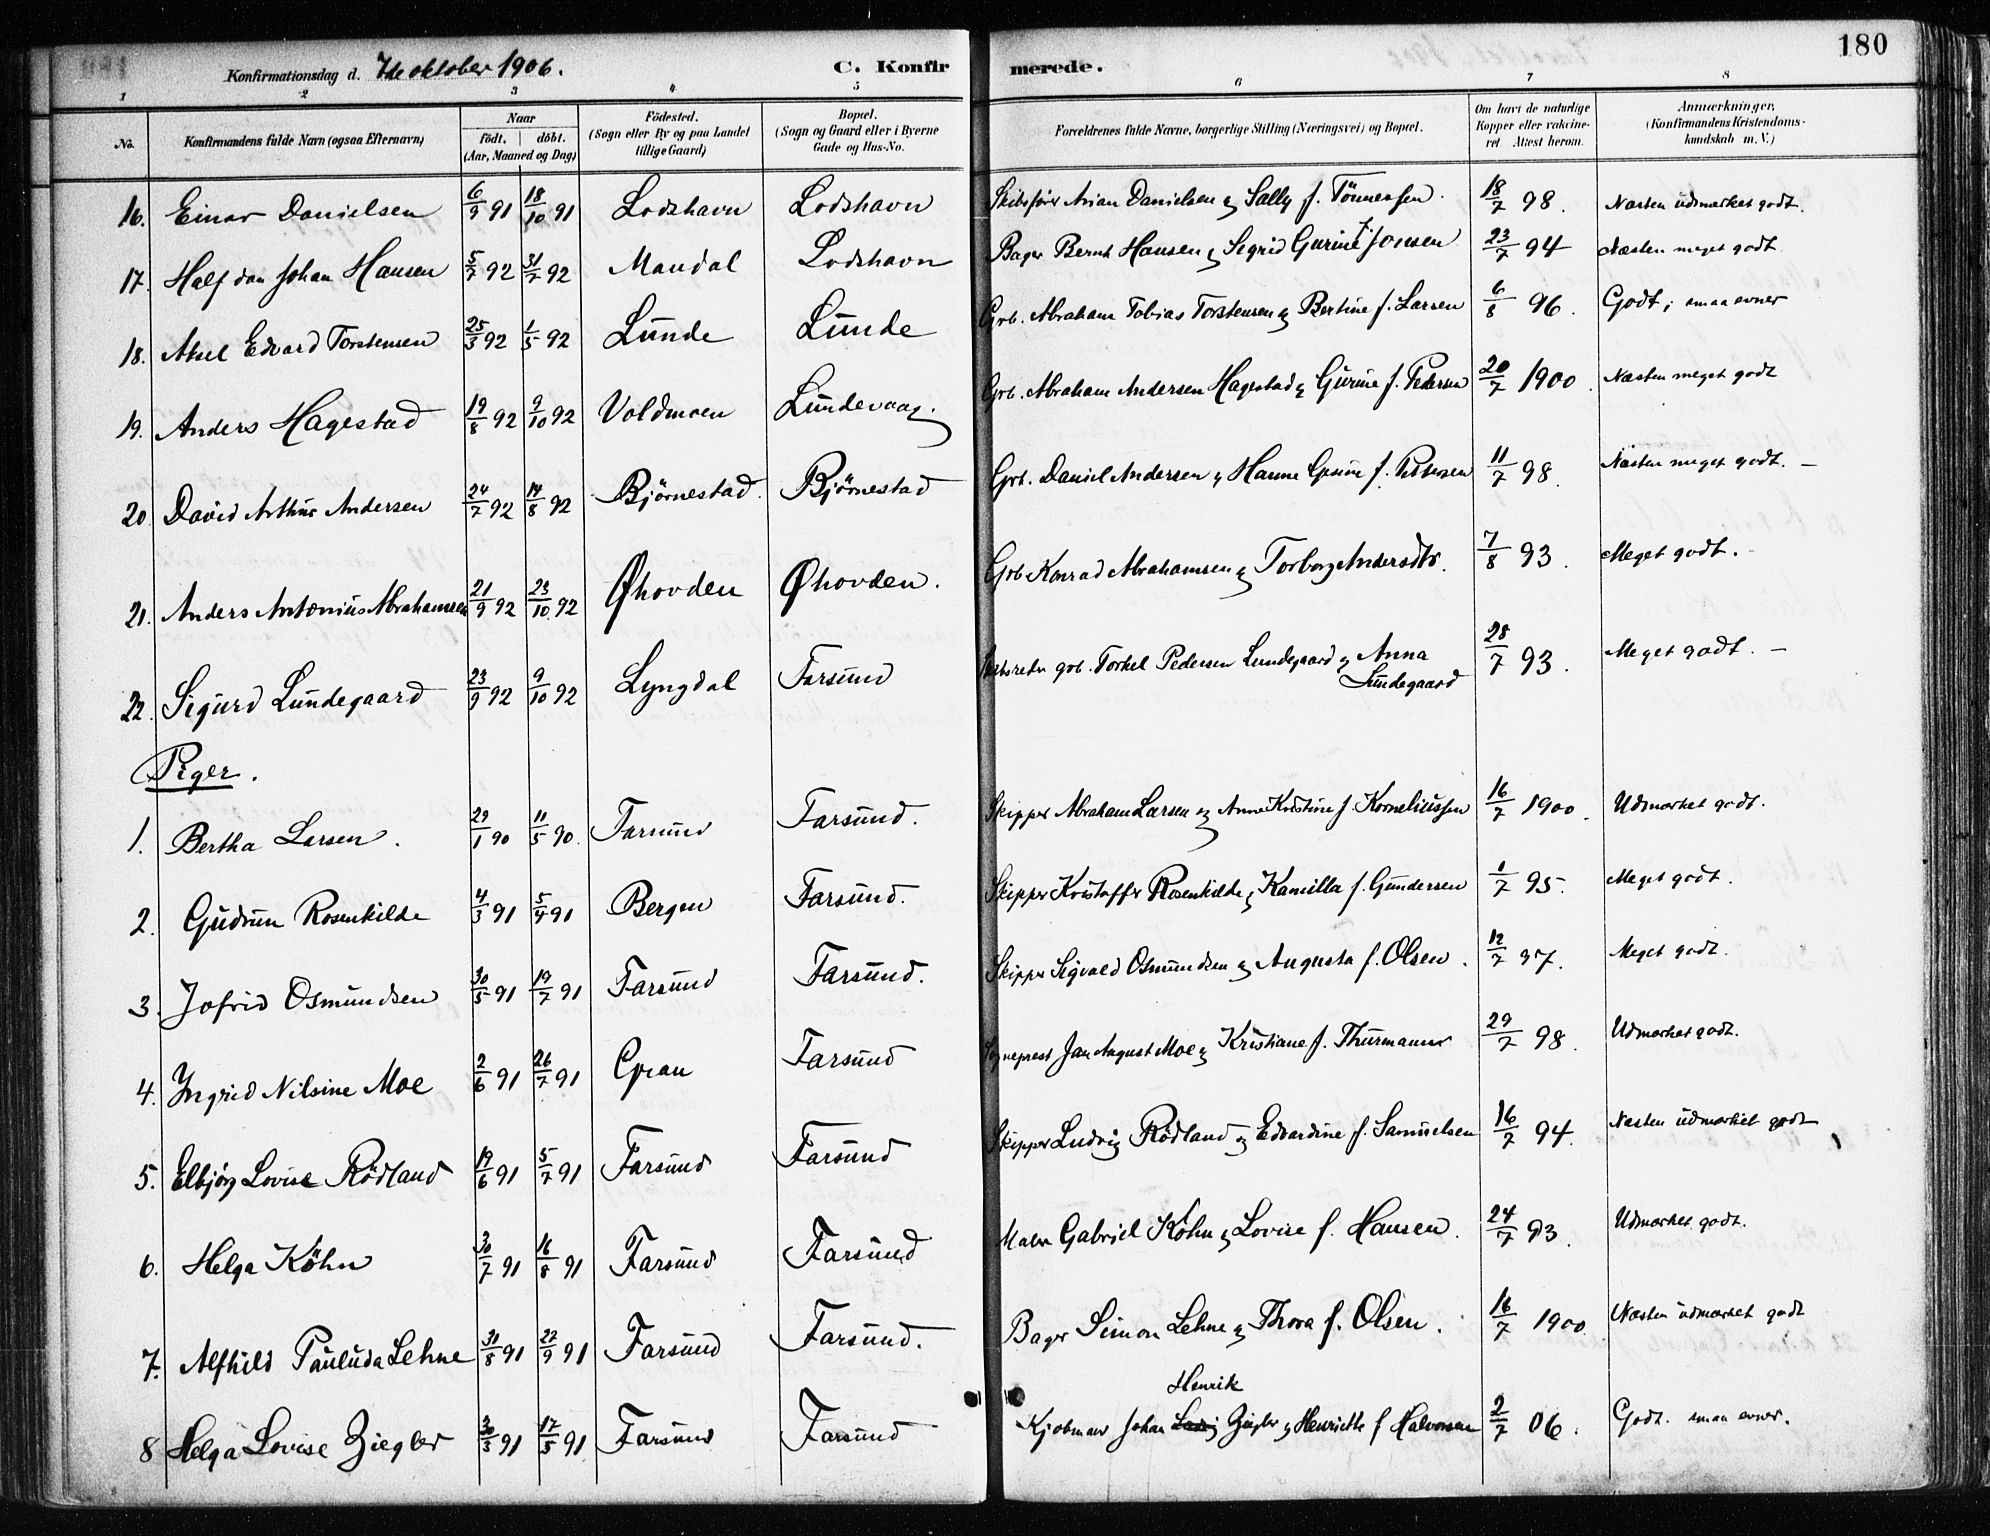 180
Konfirmationsdag d. 7de oktober 1906. C. Konfirmerede.
1 2 3 4 5 6 7 8
No. Konfirmandens fulde Navn (ogsaa Efternavn) Naar født, døbt. (Aar, Maaned og Dag) Fødested. (Sogn eller By og paa Landet tillige Gaard) Bopæl. (Sogn og Gaard eller i Byerne Gade og Hus-No. Forældrenes fulde Navne, borgerlige Stilling (Næringsvei) og Bopæl. Om havt de naturlige Kopper eller vaccineret Attest herom. Anmærkninger. (Konfirmandens Kristendomskundskab m. V.)
16. Einar Danielsen 6/9 91 18/10 91 Lodshavn Lodshavn Skibsfører Arian Danielsen og Sally f. Tönnessen. 18/7 98. Næsten udmærket godt.
17. Halfdan Johan Hansen 5/7 92 31/7 92 Mandal Lodshavn Bager Bernt Hansen og Sigrid Gurine f. Jonsen 23/7 94 Næsten meget godt
18. Aksel Edvard Torstensen 25/3 92 1/5 92 Lunde Lunde Grb. Abraham Tobias Torstensen og Bertine f. Larsen 6/8 96. Godt; smaa evner
19. Anders Hagestad 19/8 92 9/10 92 Voldmoen Lundevaag. Grb. Abraham Andersen Hagestad og Gurine f. Pedersen 20/7 1900. Næsten meget godt
20 David Arthur Andersen 24/7 92 14/8 92 Bjørnestad. Bjørnestad Grb. Daniel Andersen og Hanne f. 11/7 98. Næsten meget godt. –
21. Anders Antonius Abrahamsen 21/9 92 23/10 92 Øhovden Øhovden. Grb Konrad Abrahamsen og Torborg Andersdtr. 7/8 93. Meget godt. –
22. Sigurd Lundegaard 23/9 92 9/10 92 Lyngdal Farsund Skibsreder grb. Torkel Pedersen Lundegaard og Anna Lundegaard 28/7 93. Meget godt. –
Piger.
1. Bertha Larsen. 29/1 90 11/5 90. Farsund Farsund. Skipper Abraham Larsen og Anne Kristine f. Korneliussen 16/7 1900. Udmærket godt.
2. Gudrun Rosenkilde 4/3 91 5/4 91 Bergen Farsund. Skipper Kristoffer Rosenkilde og Kamilla f. Gundersen 1/7 95. Meget godt.
3. Jofrid Osmundsen 30/5 91 19/7 91 Farsund Farsund. Skipper Sigvald Osmundsen og Augusta f. Olsen. 12/7 97. Meget godt.
4. Ingrid Nilsine Moe 2/6 91 26/7 91 Gran Farsund Sogneprest Jan August Moe og Kristiane f. Thurmann 29/7 98. Udmærket godt.
5. Elbjørg Lovise Rödland 19/6 91 5/7 91 Farsund Farsund Skipper Ludvig Rödland og Edvardine f. Samuelsen 16/7 94. Næsten udmærket godt
6. Helga Köhn 30/7 91 16/8 91 Farsund Farsund Maler Gabriel Köhn og Lovise f. Hansen. 24/7 93. Udmærket godt.
7. Alfhild Pauluda Lehne 31/8 91 27/9 91 Farsund Farsund. Bager Simon Lehne og Thora f. Olsen. 16/7 1900 Næsten udmærket godt
Henrik
8 Helga Lovise Ziegler 30/3 91 17/5 91 Farsund Farsund Kjøbmand Johan Ziegler og Henriette f Halvorsen 2/7 06. Godt. smaa evner.